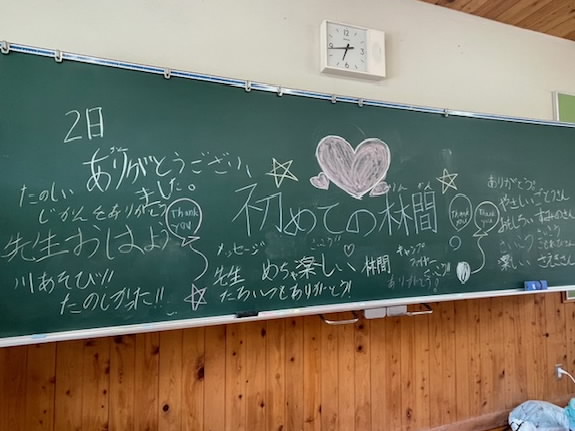 2日
ありがとうございました。
たのしい
じかんをありがとう
先生おはよう
川あそび!!
たのしかった!!
Thank you
初めての林間
りん かん
メッセージ
先生
たちいつもありがとう!!
めちゃ楽しい林間
キャンプ
ファイヤー
さいこう!!
ありがとう!
Thank you
Thank you
ありがとう。
やさしいごとうさん
おもしろい
さいこう
楽しい